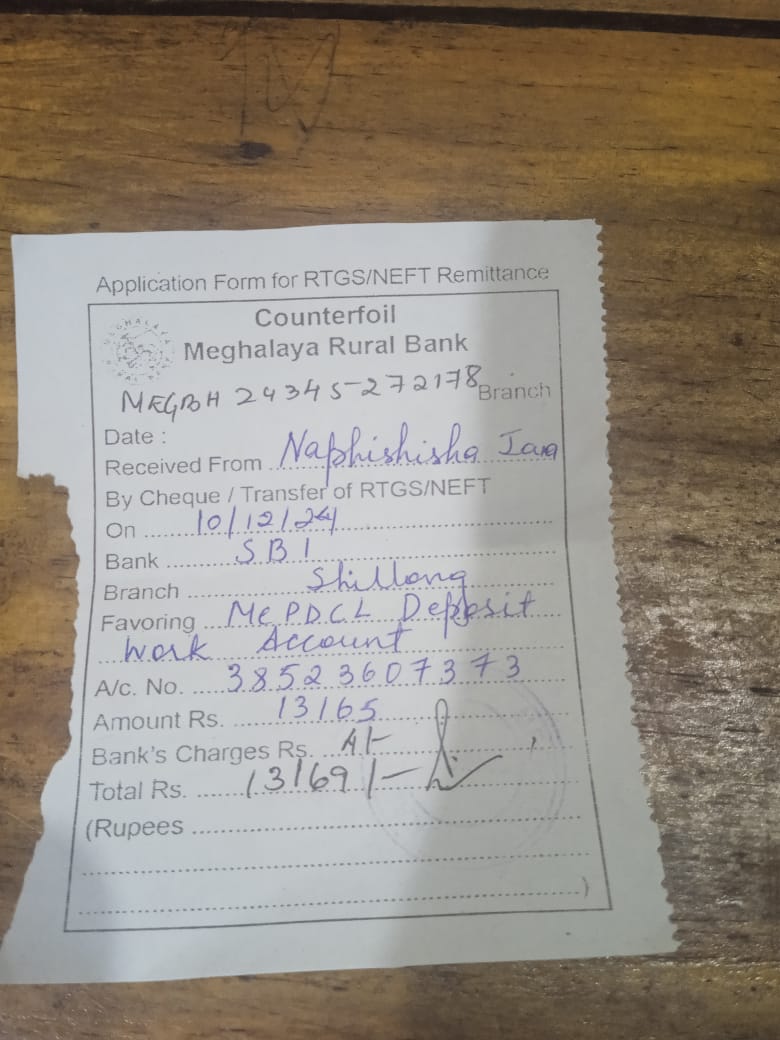 Application Form for RTGS/NEFT Remittance
Counterfoil
Meghalaya Rural Bank
MEGBH 24345-272178 Branch
Date :
Received From Naphishisha Jana
By Cheque / Transfer of RTGS/NEFT
On 10/12/24
Bank SBI
Branch Shillong
Favoring MePDCL Deposit
Work Account
A/c. No. 38523607373
Amount Rs. 13165
Bank's Charges Rs. 4/-
Total Rs. 13169/-
(Rupees
)